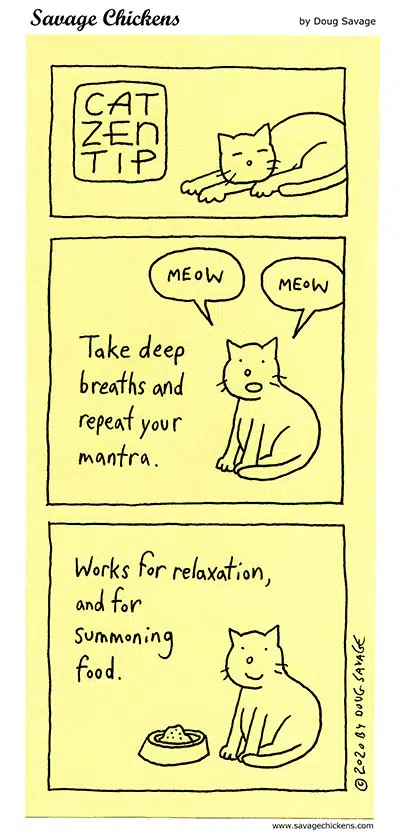 Savage Chickens
by Doug Savage
CAT
ZEN
TIP
MEOW
MEOW
Take deep
breaths and
repeat your
mantra.
Works for relaxation,
and for
summoning
food.
© 2020 BY DOUG SAVAGE
www.savagechickens.com